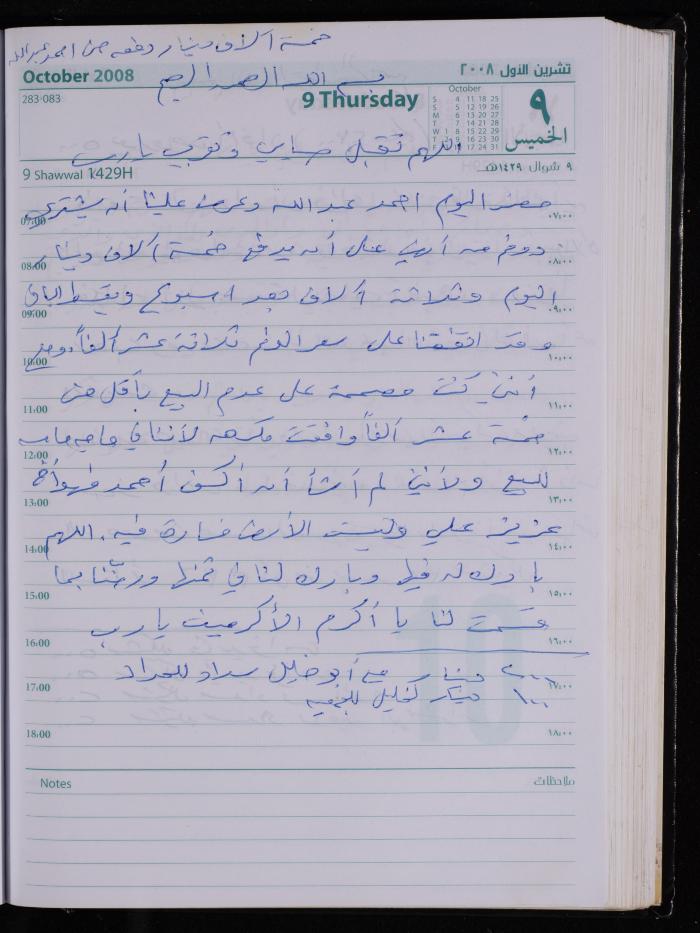 خمسة آلاف دينار دفعه من احمد عبدالله
October 2008
تشرين الأول ٢٠٠٨
بسم الله الرحمن الرحيم
283-083
9 Thursday
October
S 4 11 18 25
S 5 12 19 26
M 6 13 20 27
T 7 14 21 28
W 1 8 15 22 29
T 2 9 16 23 30
F 3 10 17 24 31
٩
الخميس
اللهم تقبل صيامي وتقربي يا رب
9 Shawwal 1429H
٩ شوال ١٤٢٩هـ
حضر اليوم احمد عبد الله وعرض علينا أن يشتري
07:00 ٠٧:٠٠
دونم من أرضي على أن يدفع خمسة آلاف دينار
08:00 ٠٨:٠٠
اليوم وثلاثة آلاف بعد اسبوع ويقسط الباقي
09:00 ٠٩:٠٠
وقد اتفقنا على سعر الدونم ثلاثة عشر ألفاً ومع
10:00 ١٠:٠٠
أنني كنت مصممة على عدم البيع بأقل من
11:00 ١١:٠٠
خمسة عشر ألفاً وافقت مكرهه لأننا في حاجه ماسه
12:00 ١٢:٠٠
للبيع ولأنني لم أشأ أن أكسف أحمد فهو أخ
13:00 ١٣:٠٠
عزيز علي وليست الأرض خسارة فيه. اللهم
14:00 ١٤:٠٠
بارك له فيها وبارك لنا في ثمنها ورضّنا بما
15:00 ١٥:٠٠
قسمت لنا يا أكرم الأكرمين يا رب
16:00 ١٦:٠٠
٢٠٠٠ دينار مع أبو خليل سداد للحداد
17:00 ١٧:٠٠
١٠٠٠ دينار لخليل للجمعيه
18:00 ١٨:٠٠
Notes
ملاحظات